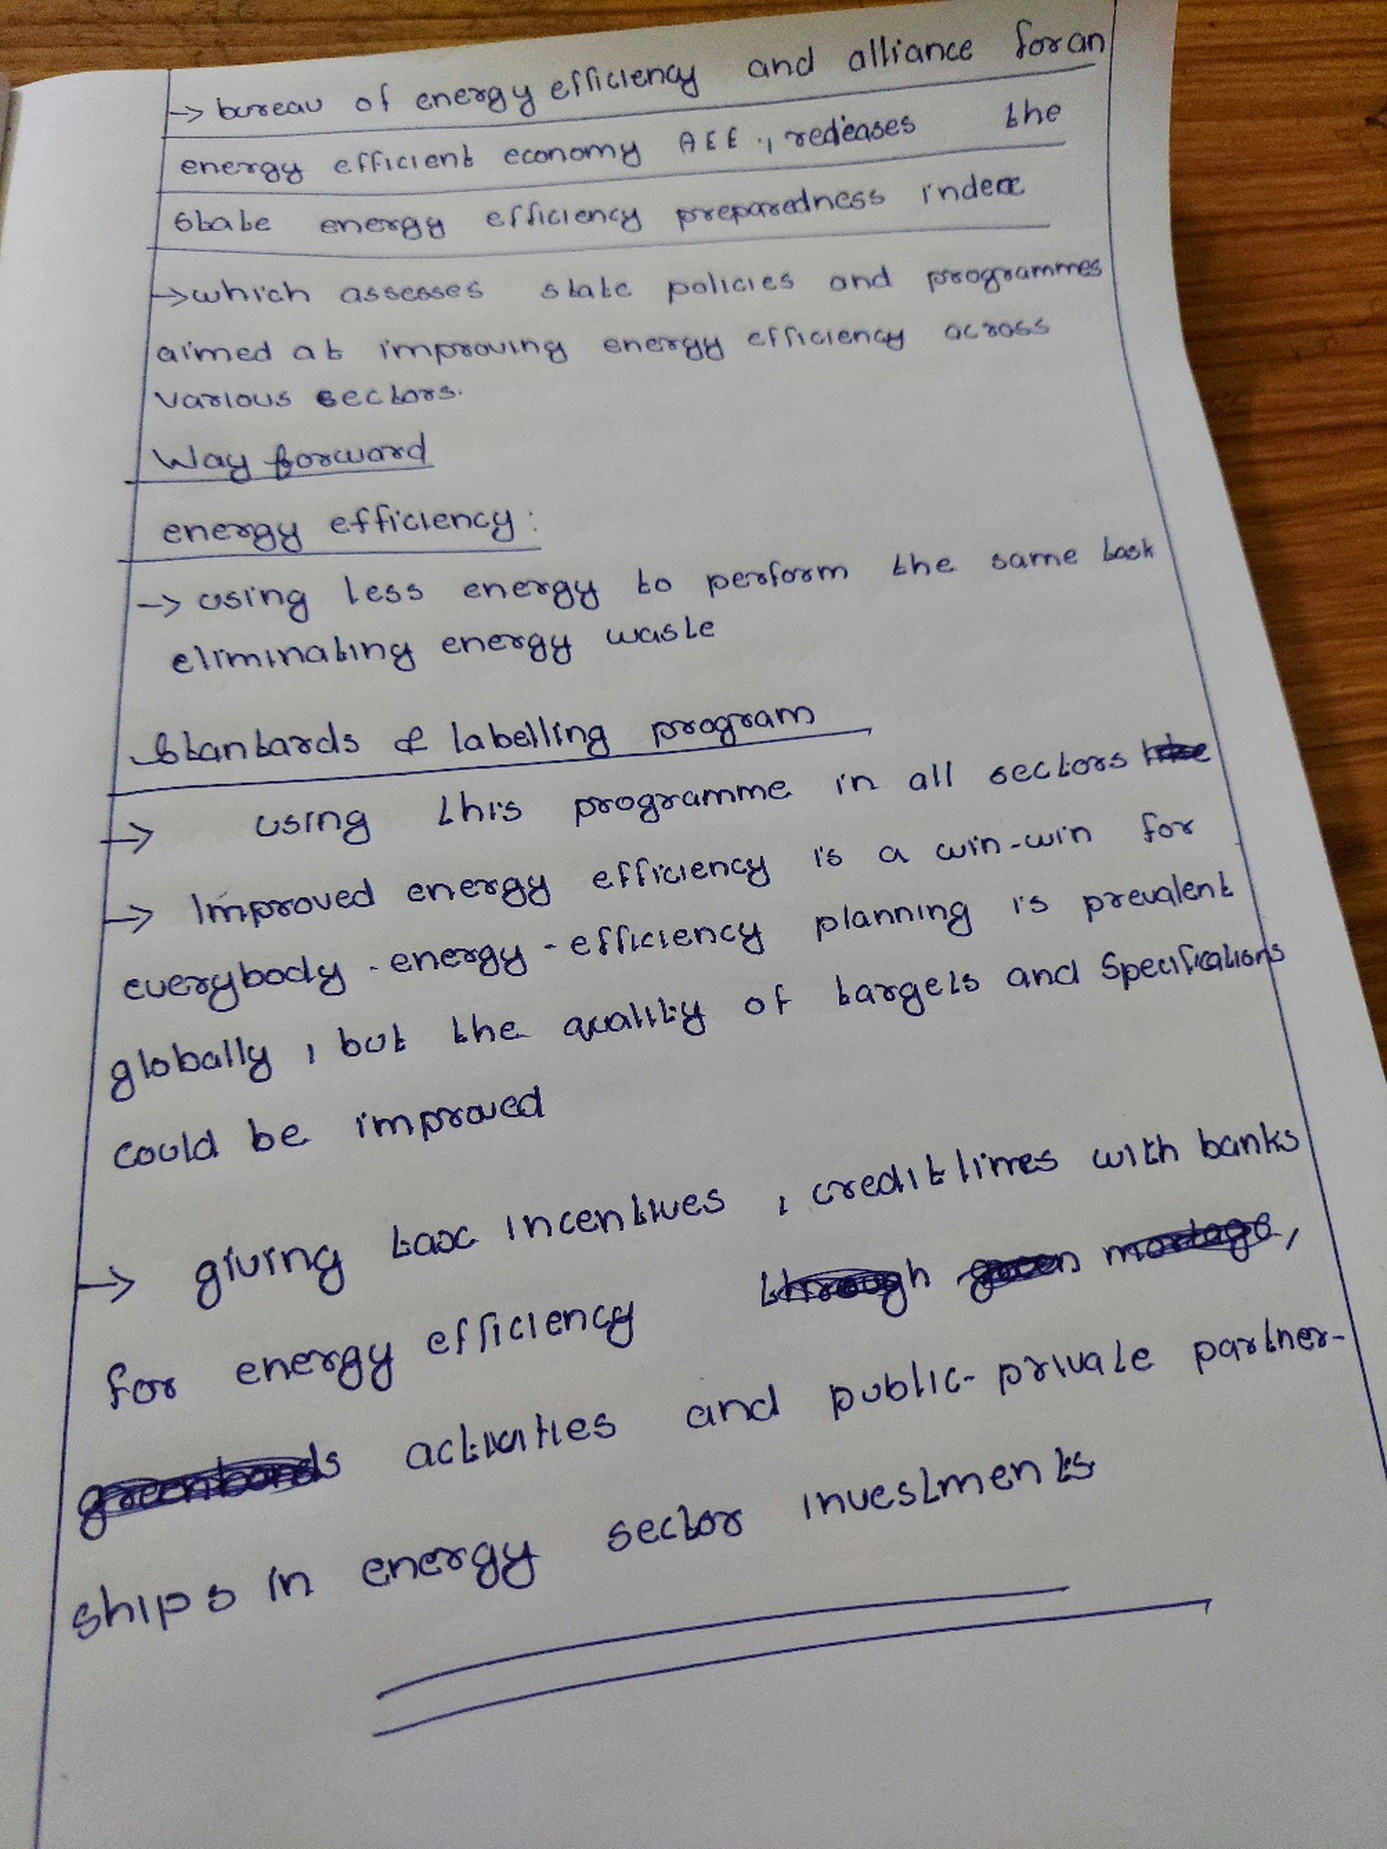 → bureau of energy efficiency and alliance for an
energy efficient economy AEE., redeases the
State energy efficiency preparedness index
→ which assesses state policies and programmes
aimed at improving energy efficiency across
various sectors.
Way forward
energy efficiency:
→ using less energy to perform the same task
eliminating energy waste
Stantards & labelling program
→ using this programme in all sectors
→ Improved energy efficiency is a win-win for
everybody. energy-efficiency planning is prevalent
globally, but the quality of targets and Specifications
could be improved
→ giving tax incentives, credit limes with banks
for energy efficiency through green mortage,
greenbonds activities and public-private partner-
ships in energy sector investments